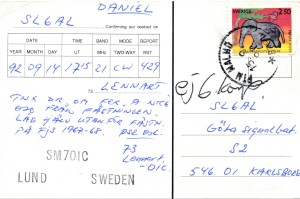 DANIEL
SL6AL
Confirming our contact on
YEAR DATE UTC BAND MODE REPORT
YEAR MONTH DAY MHZ TWO-WAY RST
92 09 14 1715 21 CW 429
LENNART
TNX DR OM FER A NICE
QSO FRÅN
LÅG SJÄLV UTANFÖR
PÅ FJS 1967-68. PSE QSL.
73
Lennart
-OIC
SM7OIC
LUND SWEDEN
SVERIGE 2.50
MALMÖ
ej 6 komp
SL6AL
Göta signalbat.
S2
546 01 KARLSBORG